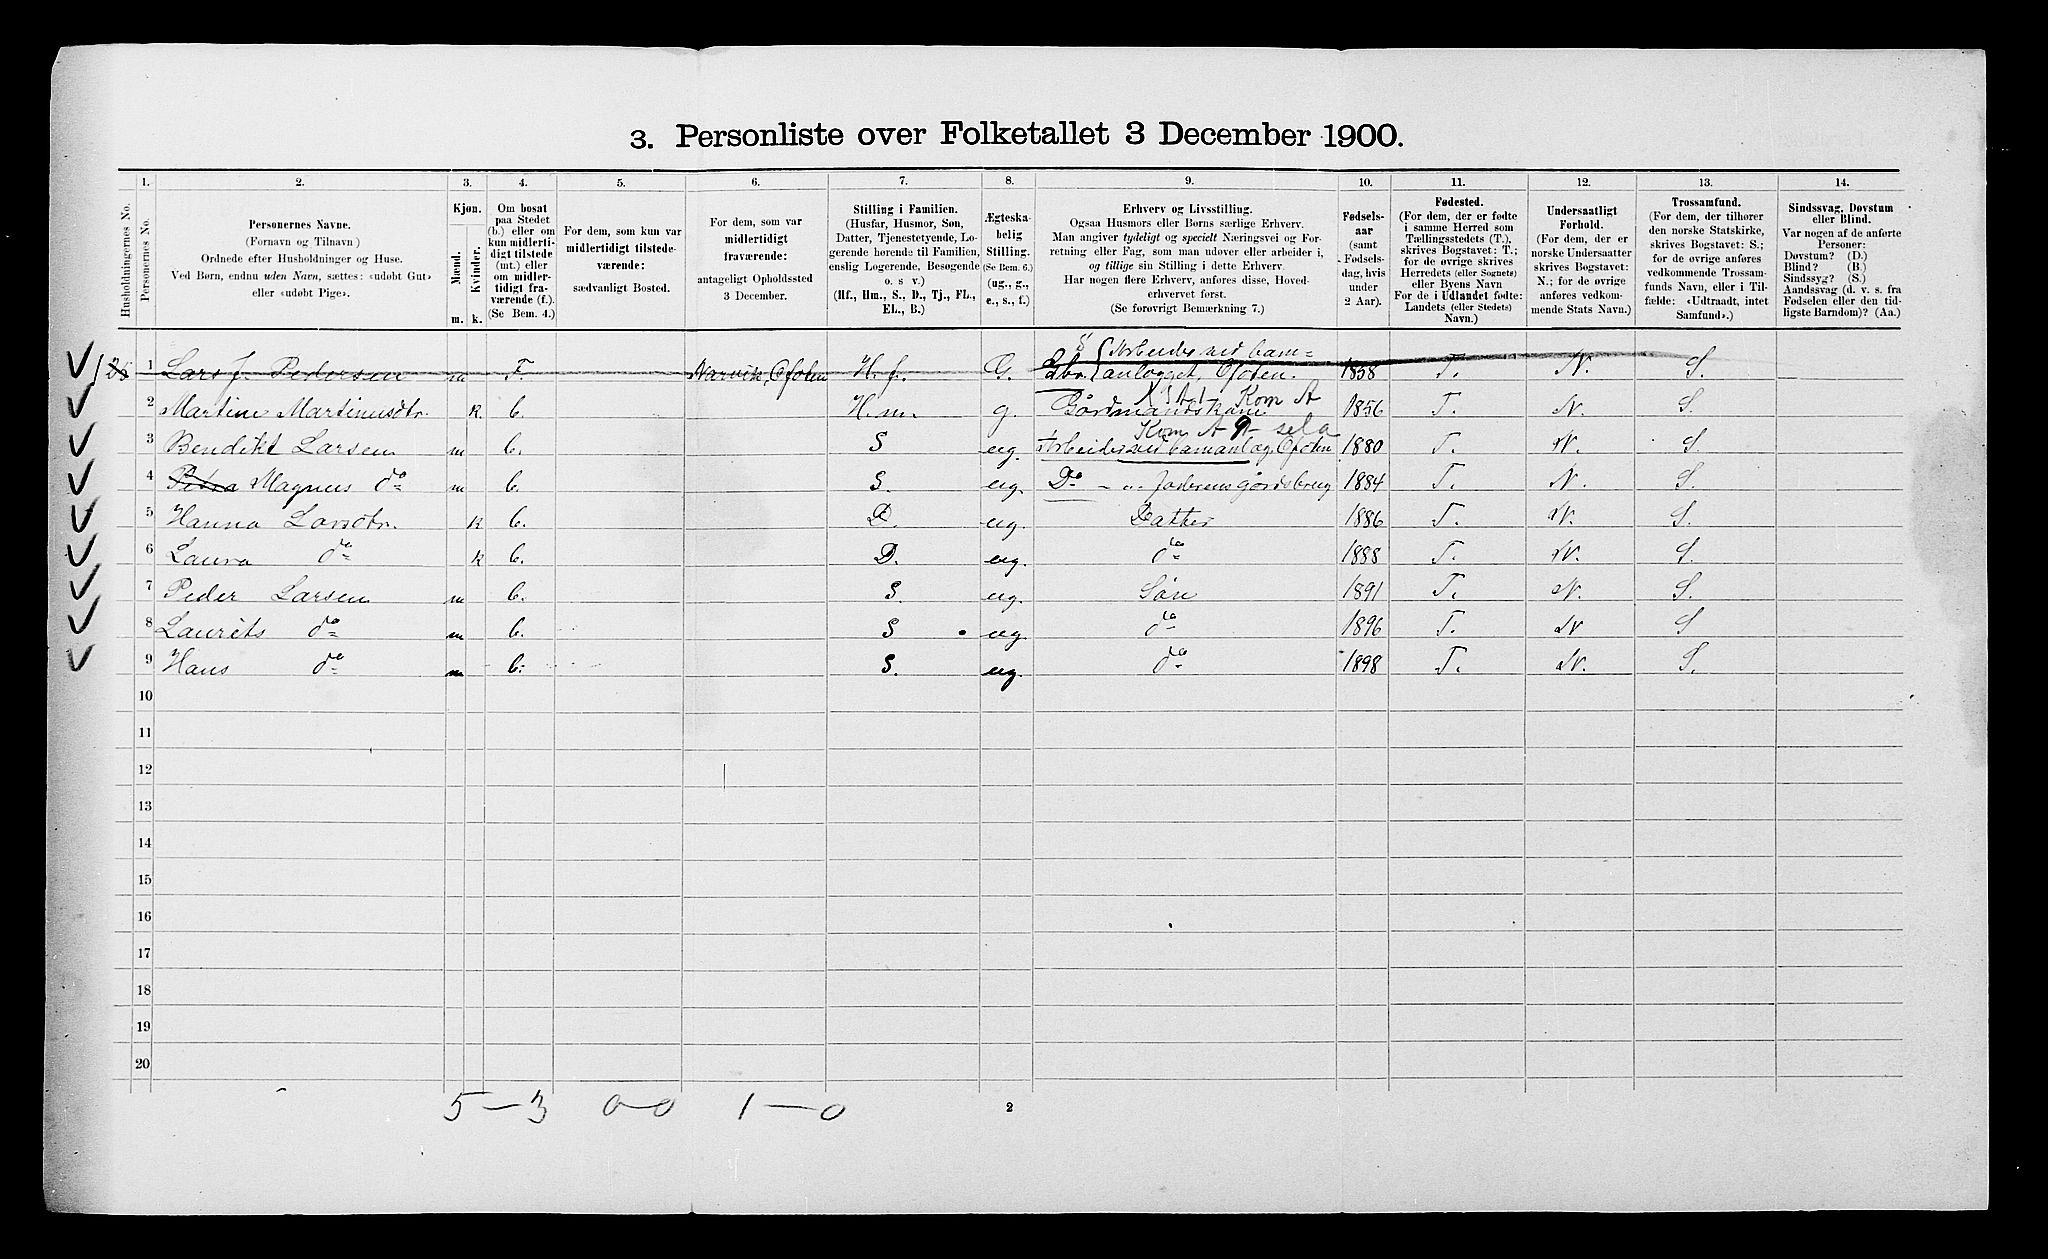 3. Personliste over Folketallet 3 December 1900.
1. 2. 3. 4. 5. 6. 7. 8. 9. 10. 11. 12. 13. 14.
Husholdningernes No.
Personernes No.
Personernes Navne.
(Fornavn og Tilnavn)
Ordnede efter Husholdninger og Huse.
Ved Børn, endnu uden Navn, sættes: «udøbt Gut»
eller «udøbt Pige».
Kjøn.
Mænd.
Kvinder.
m. k.
Om bosat
paa Stedet
(b.) eller om
kun midlerti-
digt tilstede
(mt.) eller
om midler-
tidigt fra-
værende (f.).
(Se Bem. 4.)
For dem, som kun var
midlertidigt tilstede-
værende:
sædvanligt Bosted.
For dem, som var
midlertidigt
fraværende:
antageligt Opholdssted
3 December.
Stilling i Familien.
(Husfar, Husmor, Søn,
Datter, Tjenestetyende, Lo-
gerende hørende til Familien,
enslig Logerende, Besøgende
o. s v.)
(Hf., Hm., S., D., Tj., FL.,
EL., B.)
Ægteska-
belig
Stilling.
(Se Bem. 6.)
(ug., g.,
e., s., f.)
Erhverv og Livsstilling.
Ogsaa Husmors eller Børns særlige Erhverv.
Man angiver tydeligt og specielt Næringsvei og For-
retning eller Fag, som man udøver eller arbeider i,
og tillige sin Stilling i dette Erhverv.
Har nogen flere Erhverv, anføres disse, Hoved-
erhvervet først.
(Se forøvrigt Bemærkning 7.)
Fødsels-
aar
(samt
Fødsels-
dag, hvis
under
2 Aar).
Fødested.
(For dem, der er fødte
i samme Herred som
Tællingsstedets (T.),
skrives Bogstavet: T.;
for de øvrige skrives
Herredets (eller Sognets)
eller Byens Navn
For de i Udlandet fødte:
Landets (eller Stedets)
Navn.)
Undersaatligt
Forhold.
(For dem, der er
norske Undersaatter
skrives Bogstavet:
N.; for de øvrige
anføres vedkom-
mende Stats Navn.)
Trossamfund.
(For dem, der tilhører
den norske Statskirke,
skrives Bogstavet: S.;
for de øvrige anføres
vedkommende Trossam-
funds Navn, eller i Til-
fælde: «Udtraadt, intet
Samfund».)
Sindssvag, Døvstum
eller Blind.
Var nogen af de anførte
Personer:
Døvstum? (D.)
Blind? (B.)
Sindssyg? (S.)
Aandssvag (d. v. s. fra
Fødselen eller den tid-
ligste Barndom)? (Aa.)
Arbeider ved bam=
1 Lars J. Pedersen m F. Narvik, Ofoten H. f. G. Gbr. anlægget, Ofoten. 1858 T. N. S.
Kom A
2 Martine Martinusdtr. k b. H. m. g. Gårdmandskone 1856 T. N. S.
Kom A
3 Bendikt Larsen m b. S ug. Arbeider ved bananlæg. Ofoten 1880 T. N. S
4 Petra Magnus do m b. S. ug. Do - „- faderens gårdsbrug 1884 T. N. S.
5 Hanna Larsdtr. k b. D. ug. Datter 1886 T. N. S.
6 Laura do k b. D. ug. do 1888 T. N. S.
7 Peder Larsen m b. S. ug. Søn 1891 T. N. S.
8 Laurits do m b. S ug. do 1896 T. N S
9 Hans do m b. S. ug. do 1898 T. N. S.
10
11
12
13
14
15
16
17
18
19
20
5-3 0-0 1-0 2